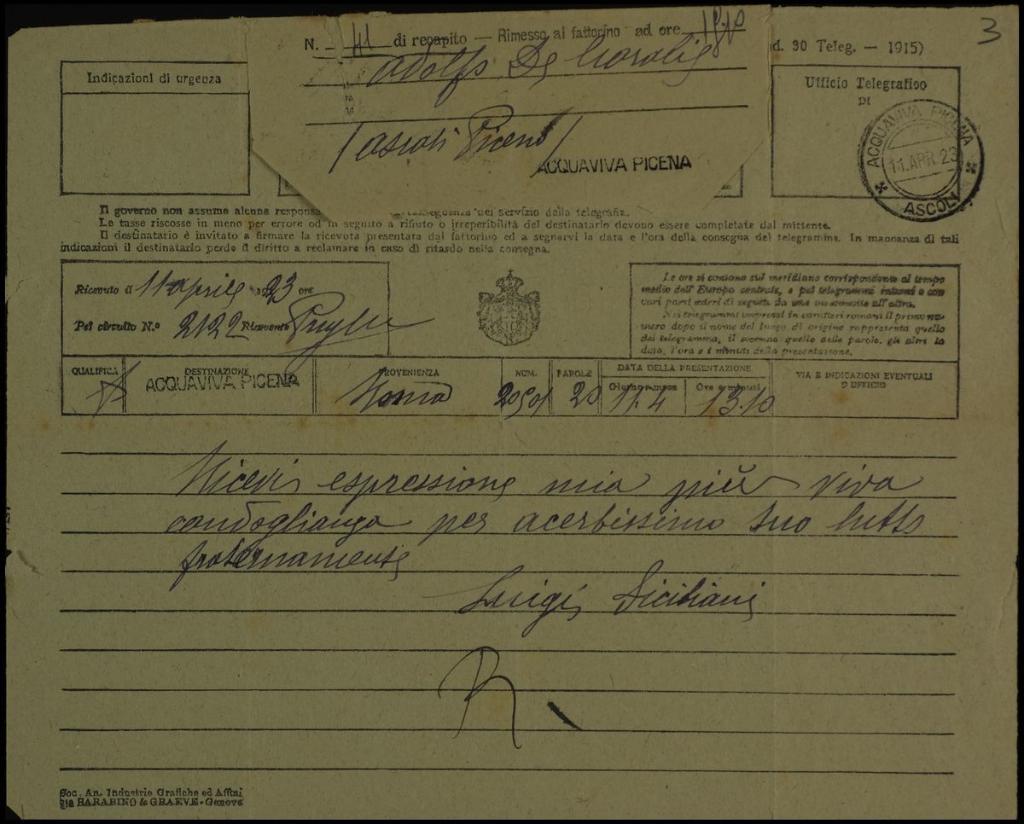 3
N. 41 di recapito — Rimesso al fattorino ad ore
Adolfo De Carolis
(Ascoli Piceno)
ACQUAVIVA PICENA
d. 30 Teleg. — 1915)
Indicazioni di urgenza
Ufficio Telegrafico
DI
ACQUAVIVA PICENA
11.APR.23
ASCOLI
Il governo non assume alcuna responsa conseguenza del servizio della telegrafia.
Le tasse riscosse in meno per errore od in seguito a rifiuto o irreperibilità del destinatario devono essere completate dal mittente.
Il destinatario è invitato a firmare la ricevuta presentata dal fattorino ed a segnarvi la data e l'ora della consegna del telegramma. In mancanza di tali
indicazioni il destinatario perde il diritto a reclamare in caso di ritardo nella consegna.
Ricevuto il 11 aprile 1923 ore
Pel circuito N.º 2122 Ricevente
Le ore si contano sul meridiano corrispondente al tempo
medio dell'Europa centrale, e pei telegrammi interni e con
vari paesi esteri di seguito da una mezzanotte all'altra.
Nei telegrammi impressi in caratteri romani il primo nu-
mero dopo il nome del luogo di origine rappresenta quello
del telegramma, il secondo quello delle parole, gli altri la
data, l'ora e i minuti della presentazione.
QUALIFICA
DESTINAZIONE
ACQUAVIVA PICENA
PROVENIENZA
Roma
NUM.
PAROLE
20
DATA DELLA PRESENTAZIONE
Giorno e mese
11.4
Ore e minuti
13.10
VIA E INDICAZIONI EVENTUALI
D'UFFICIO
Ricevi espressione mia più viva
condoglianza per acerbissimo tuo lutto
fraternamente
Luigi Siciliani
R
Soc. An. Industrie Grafiche ed Affini
già BARABINO & GRAEVE - Genova